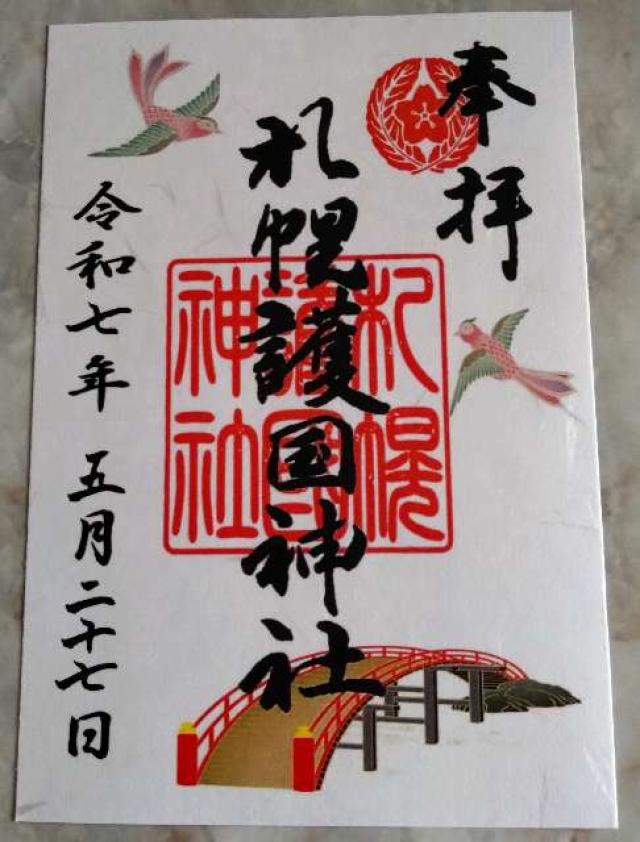 奉拝
札幌護国神社
令和七年 五月二十七日
札幌
護國
神社